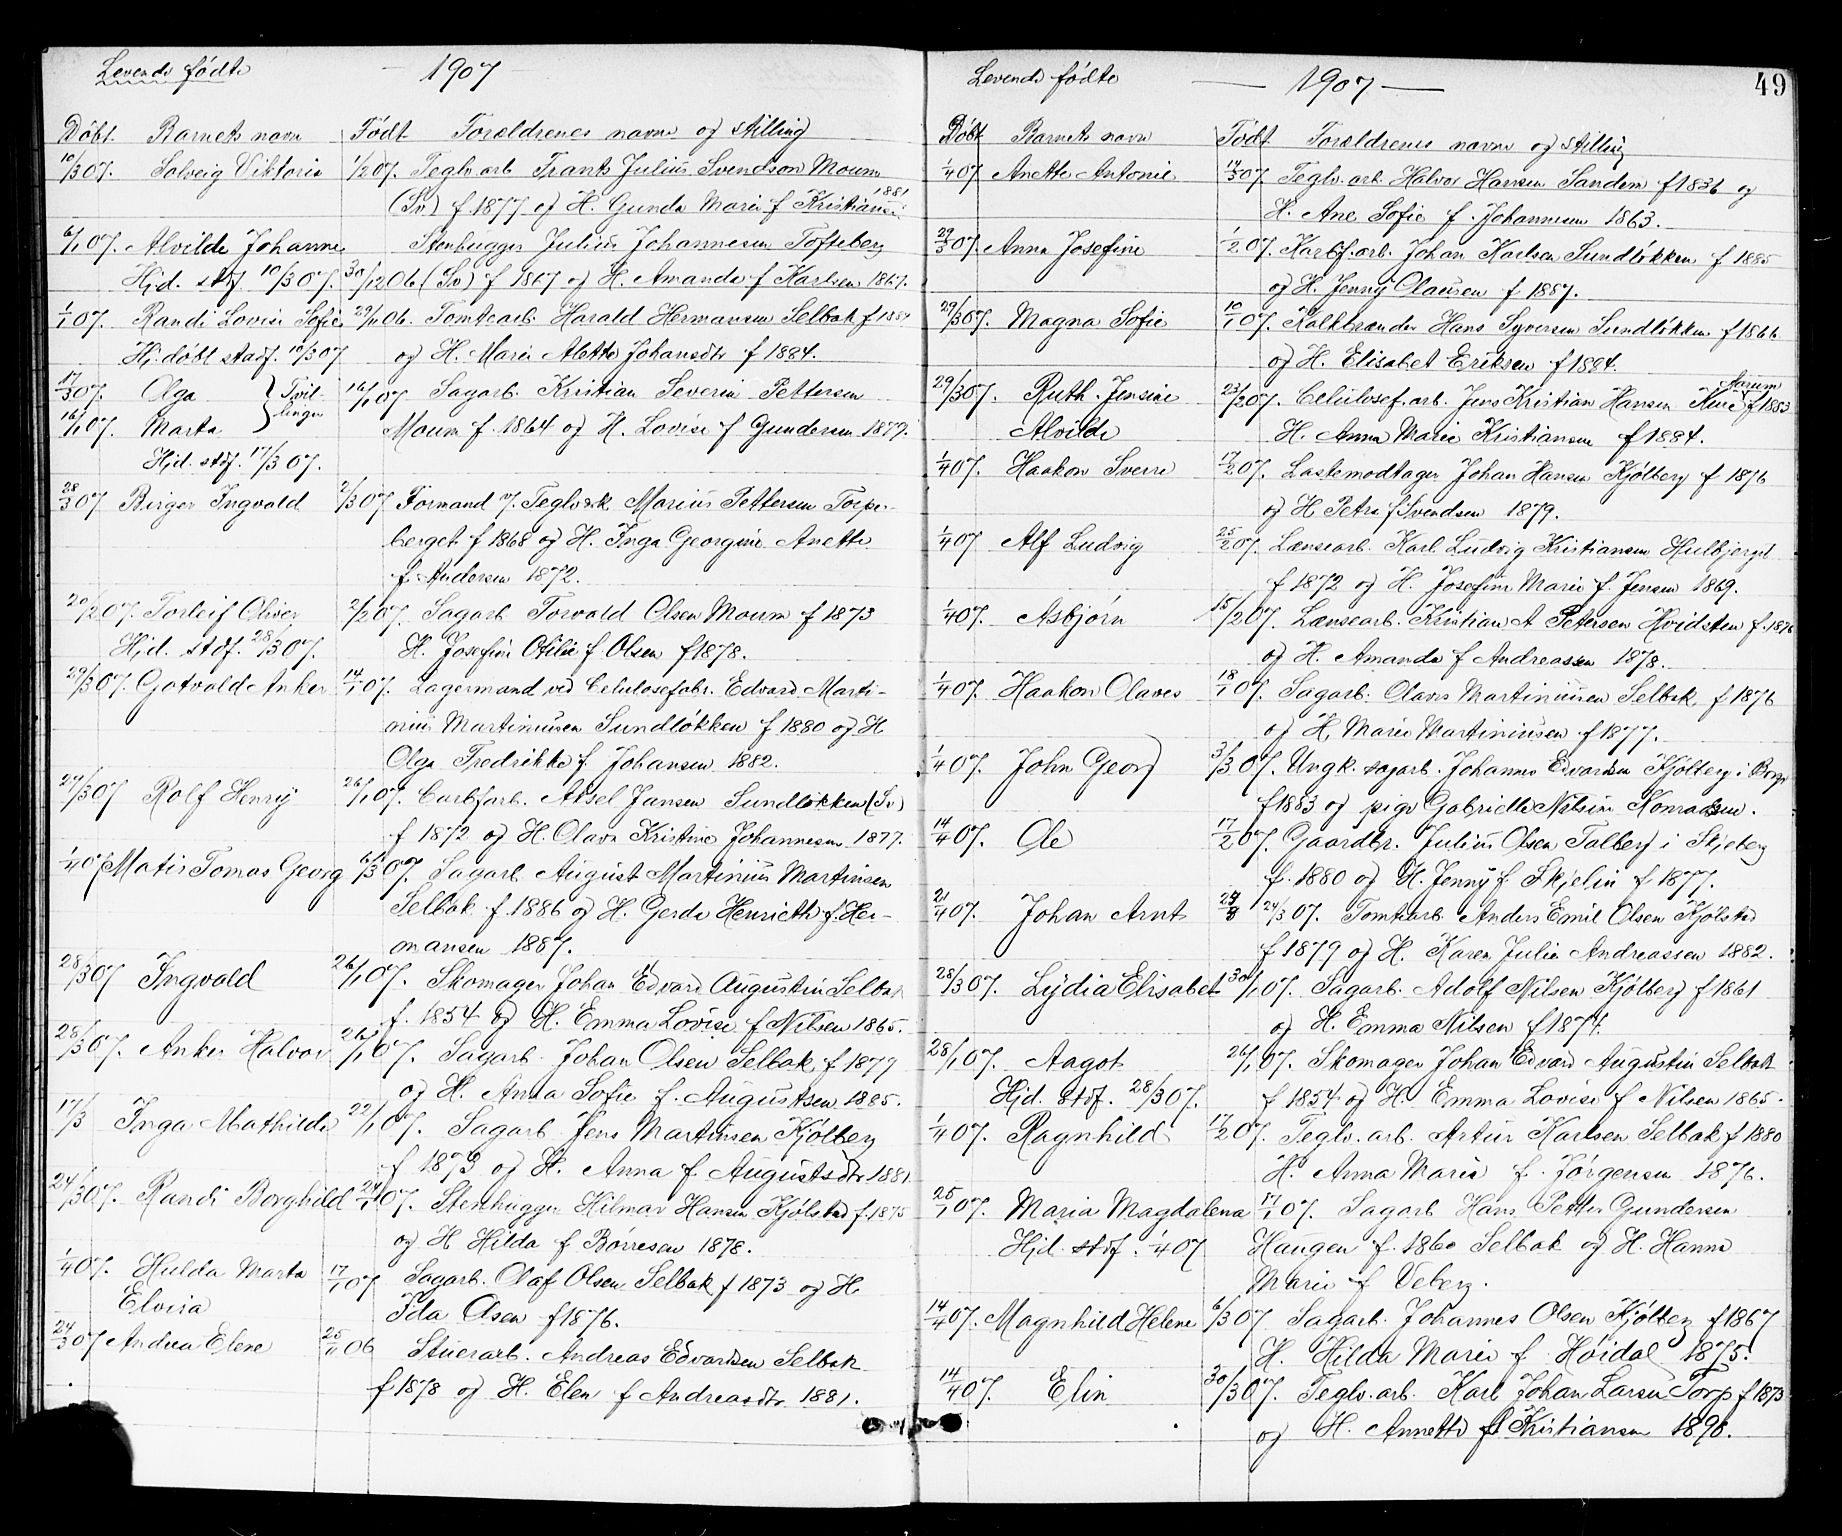 Levende fødte — 1907 —
Døbt. Barnets navn Født Forældrenes navne og stilling
10/3 07. Solveig Viktoria 1/2 07. Teglv. arb. Frants Julius Svendsen Moum
(Sv) f 1877 og H. Gunda Marie f Kristiansen 1881
6/1 07. Alvilde Johanne Stenhugger Julius Johannesen Tofteberg
Hjd. stdf. 10/3 07. 30/12 06 (Sv) f 1867 og H. Amanda f Karlsen 1867.
1/1 07. Randi Lovise Sofie 29/11 06. Tomtearb. Harald Hermansen Selbak f 1884
Hj. døbt stadf. 10/3 07 og H. Marie Alette Johansdtr f 1884.
17/3 07. Olga } Tvil- 16/1 07 Sagarb. Kristian Severin Pettersen
16/1 07. Marta } linger Moum f. 1864 og H. Lovise f Gundersen 1877.
Hjd. stdf. 17/3 07.
28/3 07 Birger Ingvald 2/3 07 Formand v. Teglverk Marius Pettersen Torpe-
berget f 1868 og H. Inga Georgine Anette
f. Andersen 1872.
20/2 07. Torleif Oliver 2/2 07. Sagarb Torvald Olsen Moum f 1873
Hjd. stdf. 28/3 07. H. Josefine Otilie f. Olsen f 1878.
29/3 07. Gotvald Anker 14/1 07. Lagermand ved Celulosefabr. Edvard Marti-
nius Martiniusen Sundløkken f 1880 og H
Olga Fredrikke f. Johansen 1882.
29/3 07 Rolf Henry 26/1 07. Carbfarb. Aksel Jansen Sundløkken (Sv)
f 1872 og H. Olava Kristine Johannesen 1877.
1/4 07 Matis Tomas Georg 6/3 07. Sagarb August Martinius Martinsen
Selbak f. 1886 og H. Gerda Henriette f. Her-
mansen 1887.
28/3 07 Ingvald 26/1 07. Skomager Johan Edvard Augustin Selbak
f. 1854 og H. Emma Lovise f Nilsen 1865.
28/3 07. Anker Halvor 26/1 07. Sagarb. Johan Olsen Selbak f 1877
og H. Anna Sofie f. Augustsen 1885.
17/3 Inga Mathilde 22/1 07. Sagarb Jens Martinsen Kjølberg
f 1873 og H. Anna f Augustsdtr 1881.
24/3 07. Randi Borghild 24/1 07. Stenhugger Hilmar Hansen Kjølstad f. 1875
og H Hilda f Børresen 1878.
1/4 07. Hulda Marta 17/1 07 Sagarb. Olaf Olsen Selbak f 1873 og H
Elvira Ida Olsen f 1876.
24/3 07 Andrea Elene 25/11 06 Stuerarb. Andreas Edvardsen Selbak
f 1878 og H. Elen f Andreasdtr 1881.
Levende fødte — 1907 — 49
Døbt Barnets navn Født Forældrenes navne og stilling
1/4 07 Anette Antonie 14/3 07. Teglv. arb. Halvor Hansen Sandem f 1836 og
H. Ane Sofie f. Johannesen 1863.
29/3 07. Anna Josefine 1/2 07. Karbf. arb. Johan Karlsen Sundløkken f 1885
og H. Jenny Olausen f 1887.
29/3 07. Magna Sofie 10/1 07. Kalkbrænder Hans Syversen Sundløkken f 1866
og H. Elisabet Eriksen f 1884.
29/3 07. Ruth Jensine 23/2 07. Celulosef. arb. Jens Kristian Hansen f 1883
Alvilde H. Anna Marie Kristiansen f 1884.
1/4 07. Haakon Sverre 17/2 07. Lastemodtager Johan Hansen Kjølberg f 1876
og H Petra f Svendsen 1879.
1/4 07 Alf Ludvig 25/2 07. Lænsearb. Karl Ludvig Kristiansen Hulbjerget
f 1872 og H. Josefine Marie f. Jensen 1869.
1/4 07. Asbjørn 15/2 07. Lænsearb. Kristian A Petersen Hvidsten f. 1876
og H. Amanda f Andreassen 1878.
1/4 07. Haakon Olaves 18/1 07. Sagarb. Olaves Martiniusen Selbak f 1876
og H. Marie Martiniusen f 1877.
1/4 07. John Georg 3/3 07. Ungk. sagarb. Johannes Edvardsen Kjølberg i Borge
f 1883 og pige Gabrielle Nilsine Konradsen.
14/4 07. Ole 17/2 07. Gaardbr. Julius Olsen Talberg i Skjeberg
f. 1880 og H. Jenny f. Skjelin f 1877.
21/4 07. Johan Arnt 24/3 07. Tomtarb. Anders Emil Olsen Kjølstad
f 1879 og H. Karen Julie Andreassen 1882.
28/3 07. Lydia Elisabet 30/1 07. Sagarb. Adolf Nilsen Kjølberg f 1861
og H. Emma Nilsen f 1874.
28/1 07. Aagot 26/1 07. Skomager Johan Edvard Augustin Selbak
Hjd. stdf. 28/3 07. f 1854 og H. Emma Lovise f Nilsen 1865.
1/4 07. Ragnhild 17/2 07. Teglv. arb. Artur Karlsen Selbak f 1880
H. Anna Marie f. Jørgensen 1876.
25/1 07. Maria Magdalena 17/1 07. Sagarb Hans Petter Gundersen
Hjd. stdf. 1/4 07 Haugen f. 1860 Selbak og H. Hanna
Marie f Veberg.
14/4 07. Magnhild Helene 6/3 07 Sagarb. Johannes Olsen Kjølberg f 1867
H. Hilda Marie f Høidal 1875.
14/4 07. Elin 30/3 07. Teglv. arb. Karl Johan Larsen Torp f 1873
og H. Annette f Kristiansen 1898.